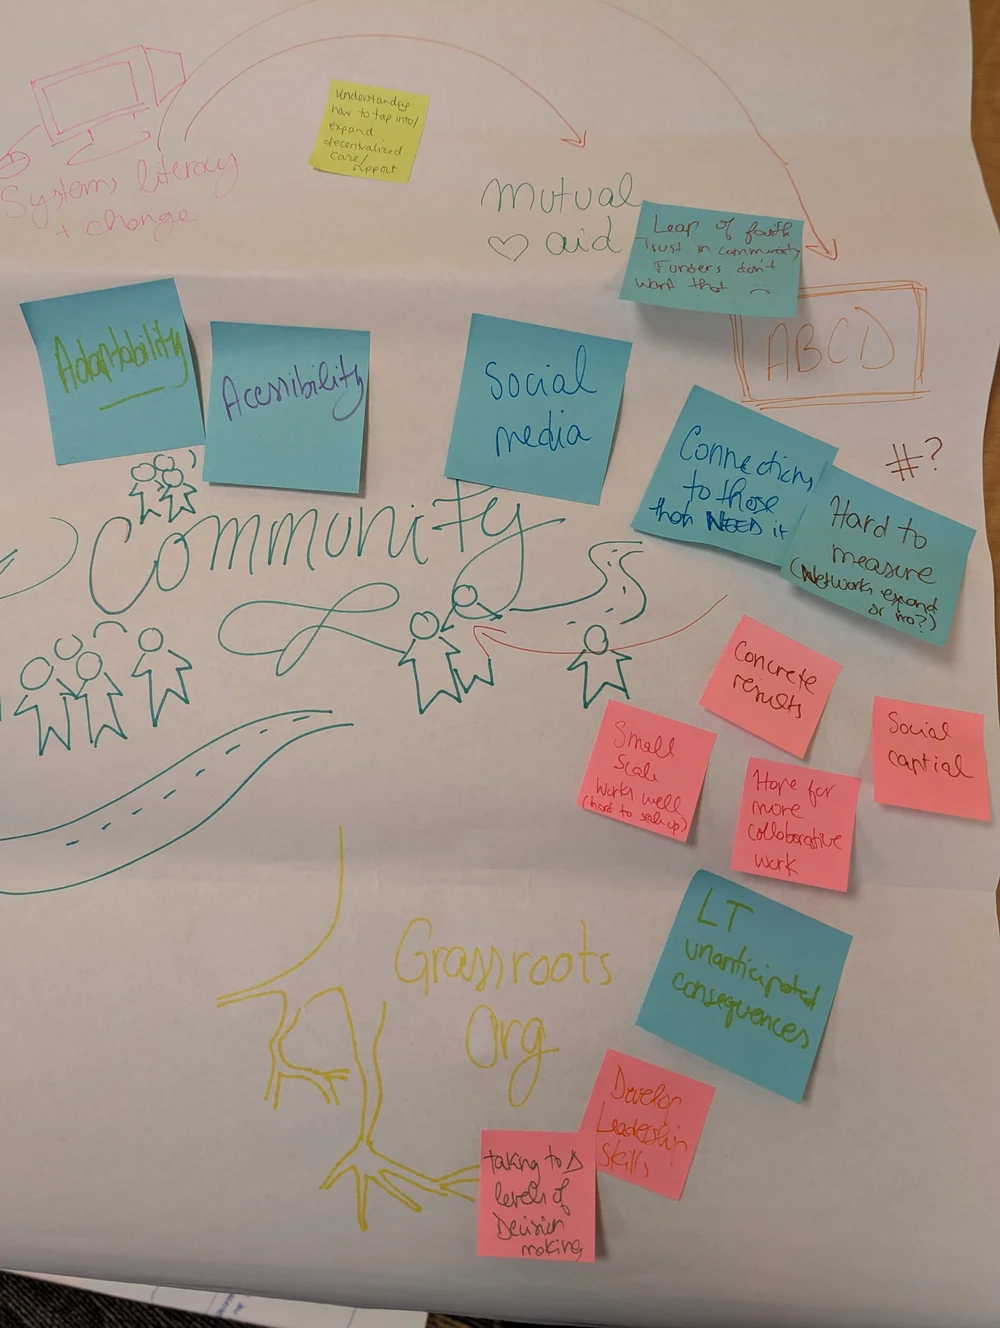 Understanding
how to tap into/
expand
decentralized
care/
support
Systems literacy
+ change
mutual
♡ aid
Leap of faith
Trust in community
Funders don't
want that
ABCD
Adaptability
Acessibility
Social
media
Connections
to those
that NEED it
#?
Hard to
measure
(Networks expand
or no?)
Community
Concrete
results
Small
scale
works well
(hard to scale up)
Hope for
more
collaborative
work
Social
captial
LT
unanticipated
consequences
Grassroots
Org
Develop
Leadership
skills
taking to Δ
levels of
Decision
making